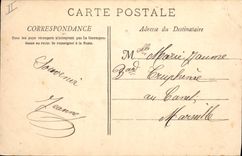 II
CARTE POSTALE
CORRESPONDANCE
Pour les pays étrangers n'acceptant pas la Correspon-
dance au recto, se renseigner à la Poste.
Adresse du Destinataire
Souvenir
Jeanne
Mlle Marie Jeanne
Bard
au Canet
Marseille